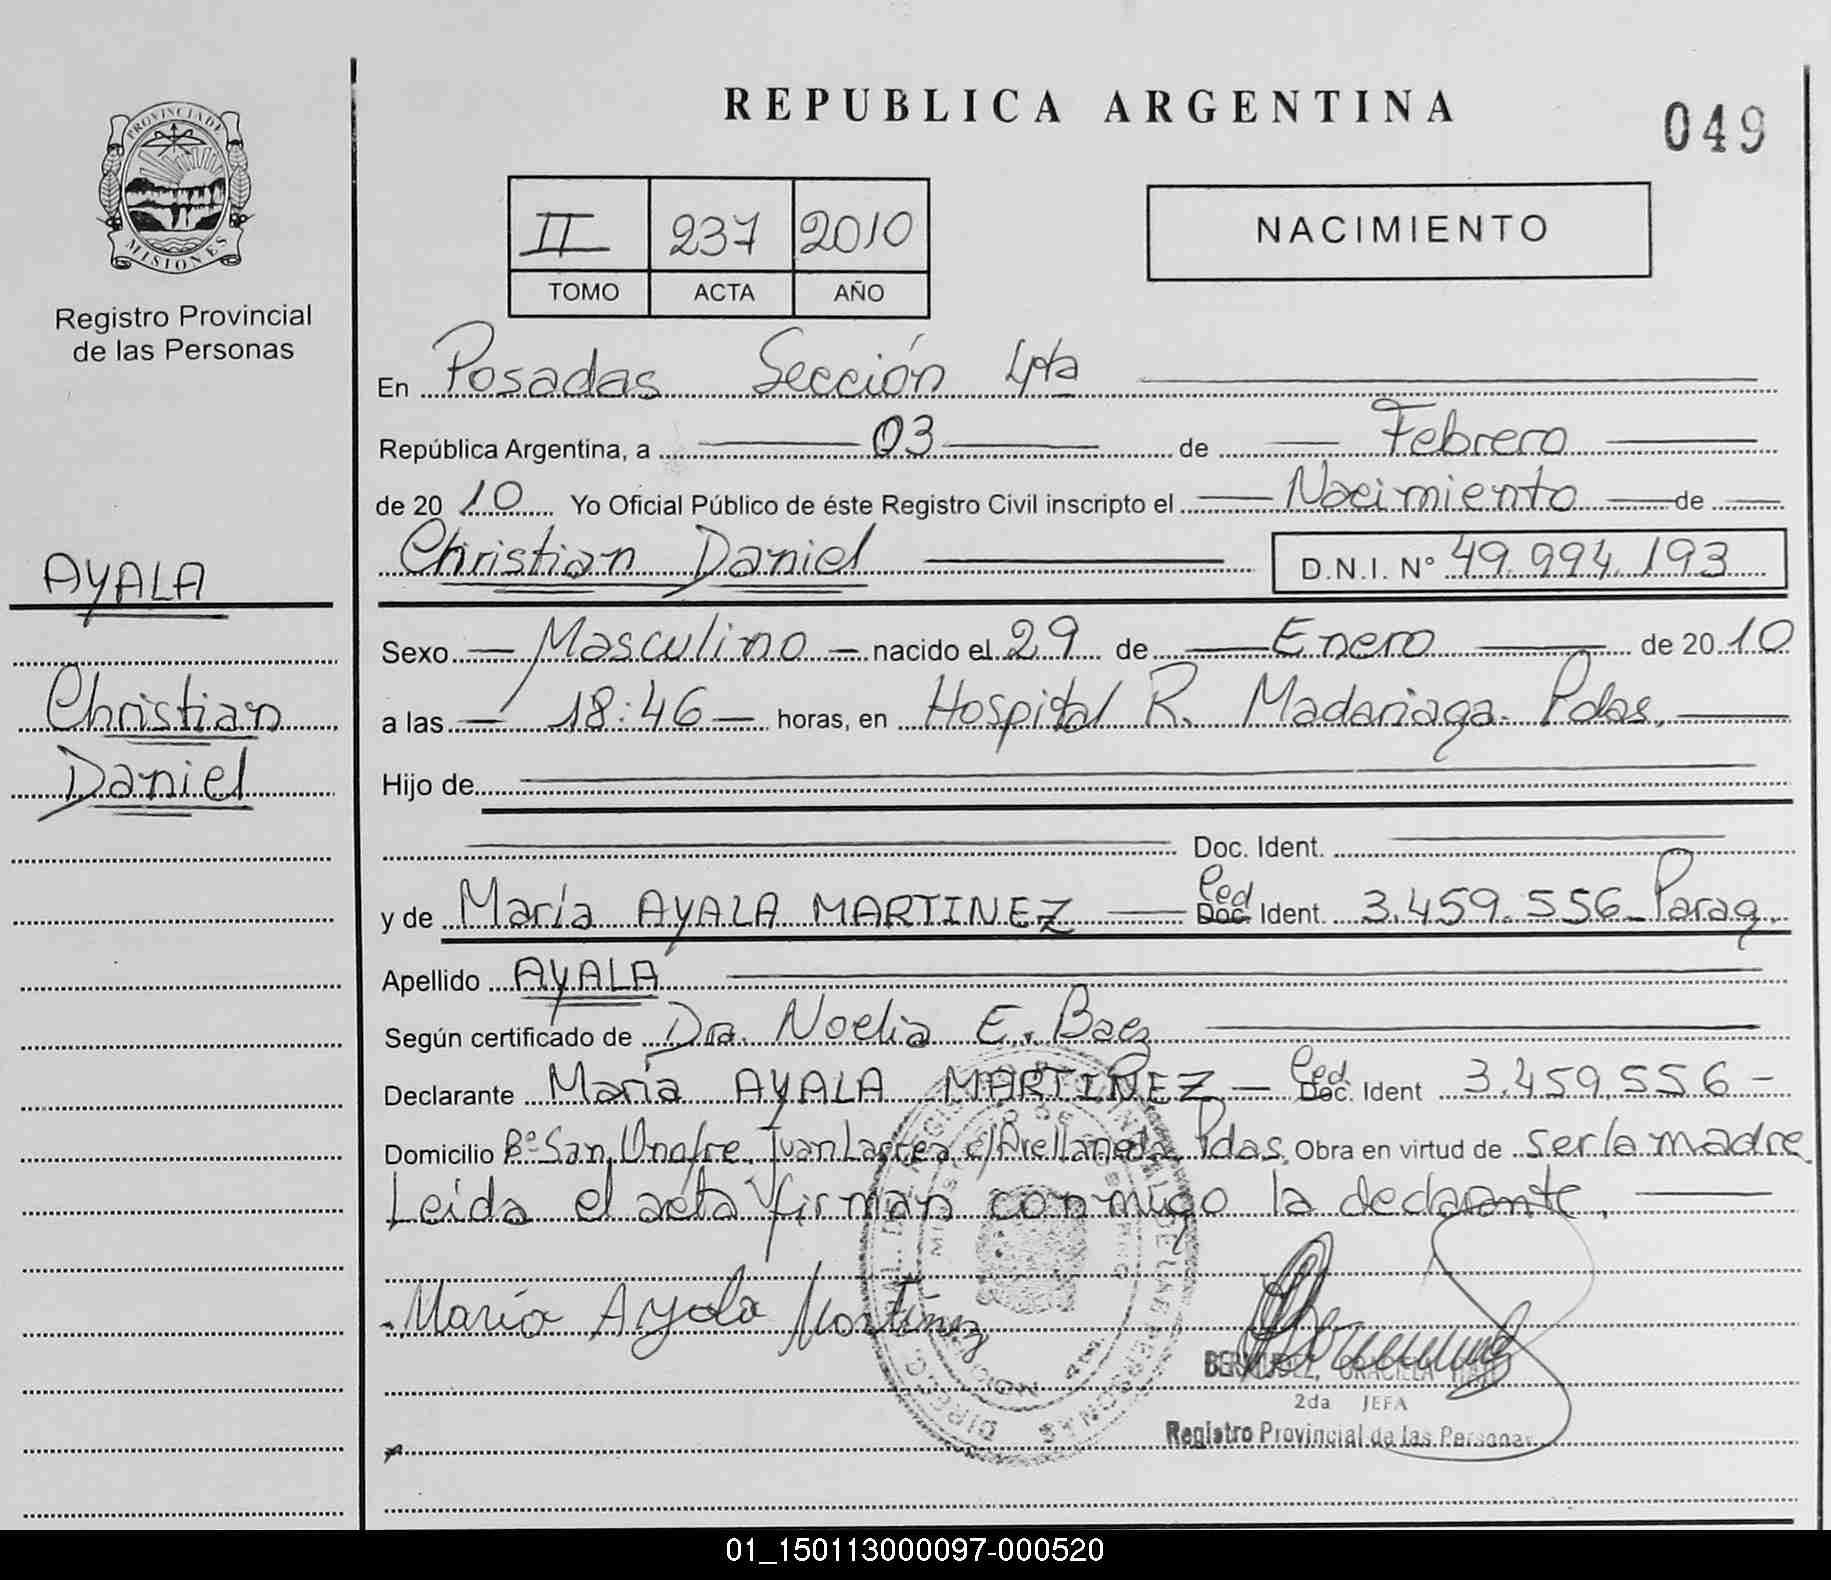 REPUBLICA ARGENTINA
049
PROVINCIA DE MISIONES
Registro Provincial
de las Personas
II 237 2010
TOMO ACTA AÑO
NACIMIENTO
En Posadas Sección 4ta
República Argentina, a 03 de Febrero
de 20 10 Yo Oficial Público de éste Registro Civil inscripto el Nacimiento de
Christian Daniel D.N.I. N° 49.994.193
AYALA
Christian
Daniel
Sexo Masculino nacido el 29 de Enero de 20 10
a las 18:46 horas, en Hospital R. Madariaga. Pdas.
Hijo de
Doc. Ident.
y de María AYALA MARTINEZ Ced Doc. Ident. 3.459.556 Parag.
Apellido AYALA
Según certificado de Dra. Noelia E. Baez
Declarante María AYALA MARTINEZ Ced Doc. Ident 3.459.556
Domicilio B° San Onofre. Juan Larrea c/ Avellaneda Pdas. Obra en virtud de ser la madre
Leida el acta firman conmigo la declarante.
María Ayala Martinez
BERMUDEZ, GRACIELA
2da JEFA
Registro Provincial de las Personas
01_150113000097-000520